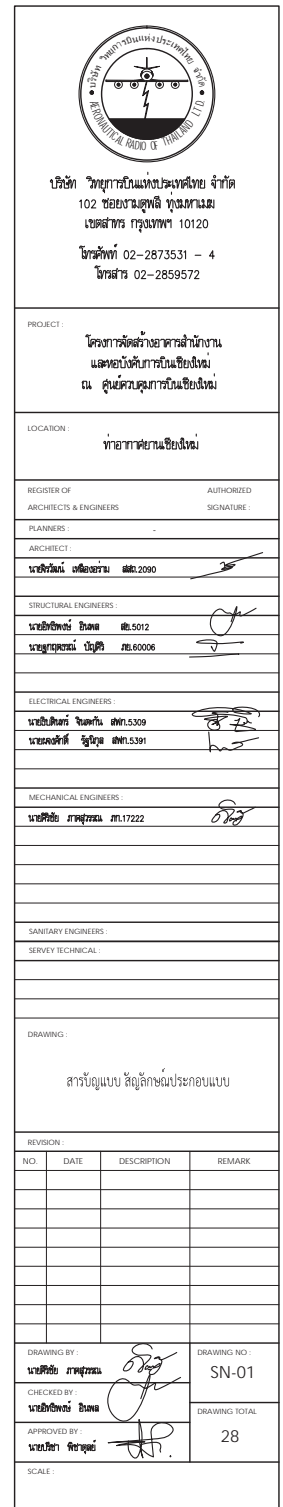 บริษัท วิทยุการบินแห่งประเทศไทย จำกัด
AERONAUTICAL RADIO OF THAILAND LTD.
บริษัท วิทยุการบินแห่งประเทศไทย จำกัด
102 ซอยงามดูพลี ทุ่งมหาเมฆ
เขตสาทร กรุงเทพฯ 10120
โทรศัพท์ 02-2873531 - 4
โทรสาร 02-2859572
PROJECT :
โครงการจัดสร้างอาคารสำนักงาน
และหอบังคับการบินเชียงใหม่
ณ ศูนย์ควบคุมการบินเชียงใหม่
LOCATION :
ท่าอากาศยานเชียงใหม่
REGISTER OF AUTHORIZED
ARCHITECTS & ENGINEERS SIGNATURE :
PLANNERS : -
ARCHITECT :
เหลืองอร่าม สสถ.2090
STRUCTURAL ENGINEERS :
นายอิทธิพงษ์ อินพล สย.5012
บัญศิริ ภย.60006
ELECTRICAL ENGINEERS :
สฟก.5309
สฟก.5391
MECHANICAL ENGINEERS :
นายศิริชัย ภาคสุวรรณ ภก.17222
SANITARY ENGINEERS :
SERVEY TECHNICAL :
DRAWING :
สารบัญแบบ สัญลักษณ์ประกอบแบบ
REVISION :
NO. DATE DESCRIPTION REMARK
DRAWING BY : DRAWING NO :
นายศิริชัย ภาคสุวรรณ SN-01
CHECKED BY :
นายอิทธิพงษ์ อินพล
DRAWING TOTAL
APPROVED BY : 28
นายปรีชา
SCALE :